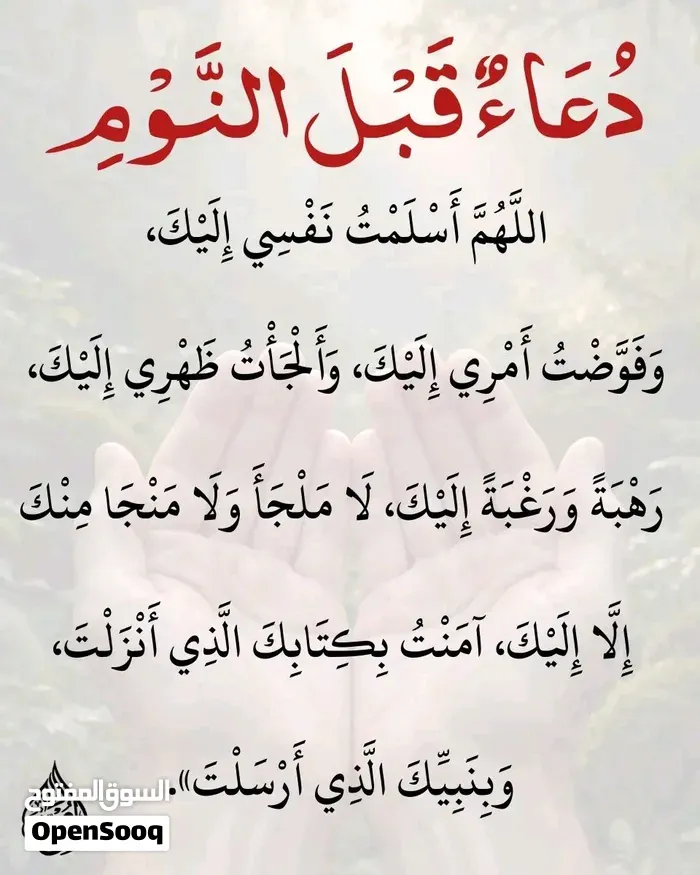 دُعَاءٌ قَبْلَ النَّوْمِ
اللَّهُمَّ أَسْلَمْتُ نَفْسِي إِلَيْكَ،
وَفَوَّضْتُ أَمْرِي إِلَيْكَ، وَأَلْجَأْتُ ظَهْرِي إِلَيْكَ،
رَهْبَةً وَرَغْبَةً إِلَيْكَ، لَا مَلْجَأَ وَلَا مَنْجَا مِنْكَ
إِلَّا إِلَيْكَ، آمَنْتُ بِكِتَابِكَ الَّذِي أَنْزَلْتَ،
وَبِنَبِيِّكَ الَّذِي أَرْسَلْتَ».
السوق المفتوح
OpenSooq